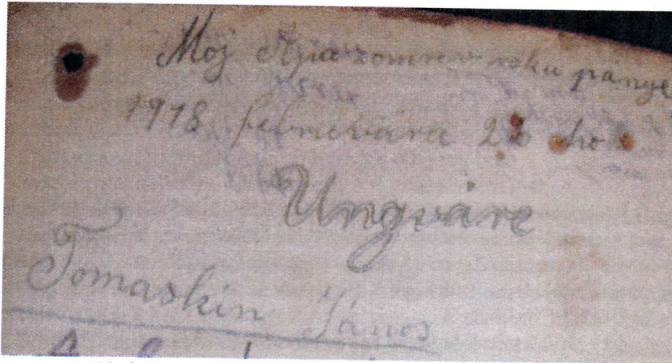 Moj Apa zomrev roku pánye
1918 februvára 22 ho
Ungváre
Tomaskin János